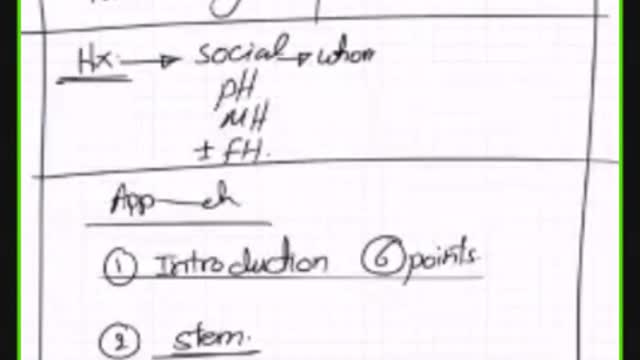 Hx → social → whom
pH
MH
± FH.
App—ch
① Introduction ⑥ points
② stem.